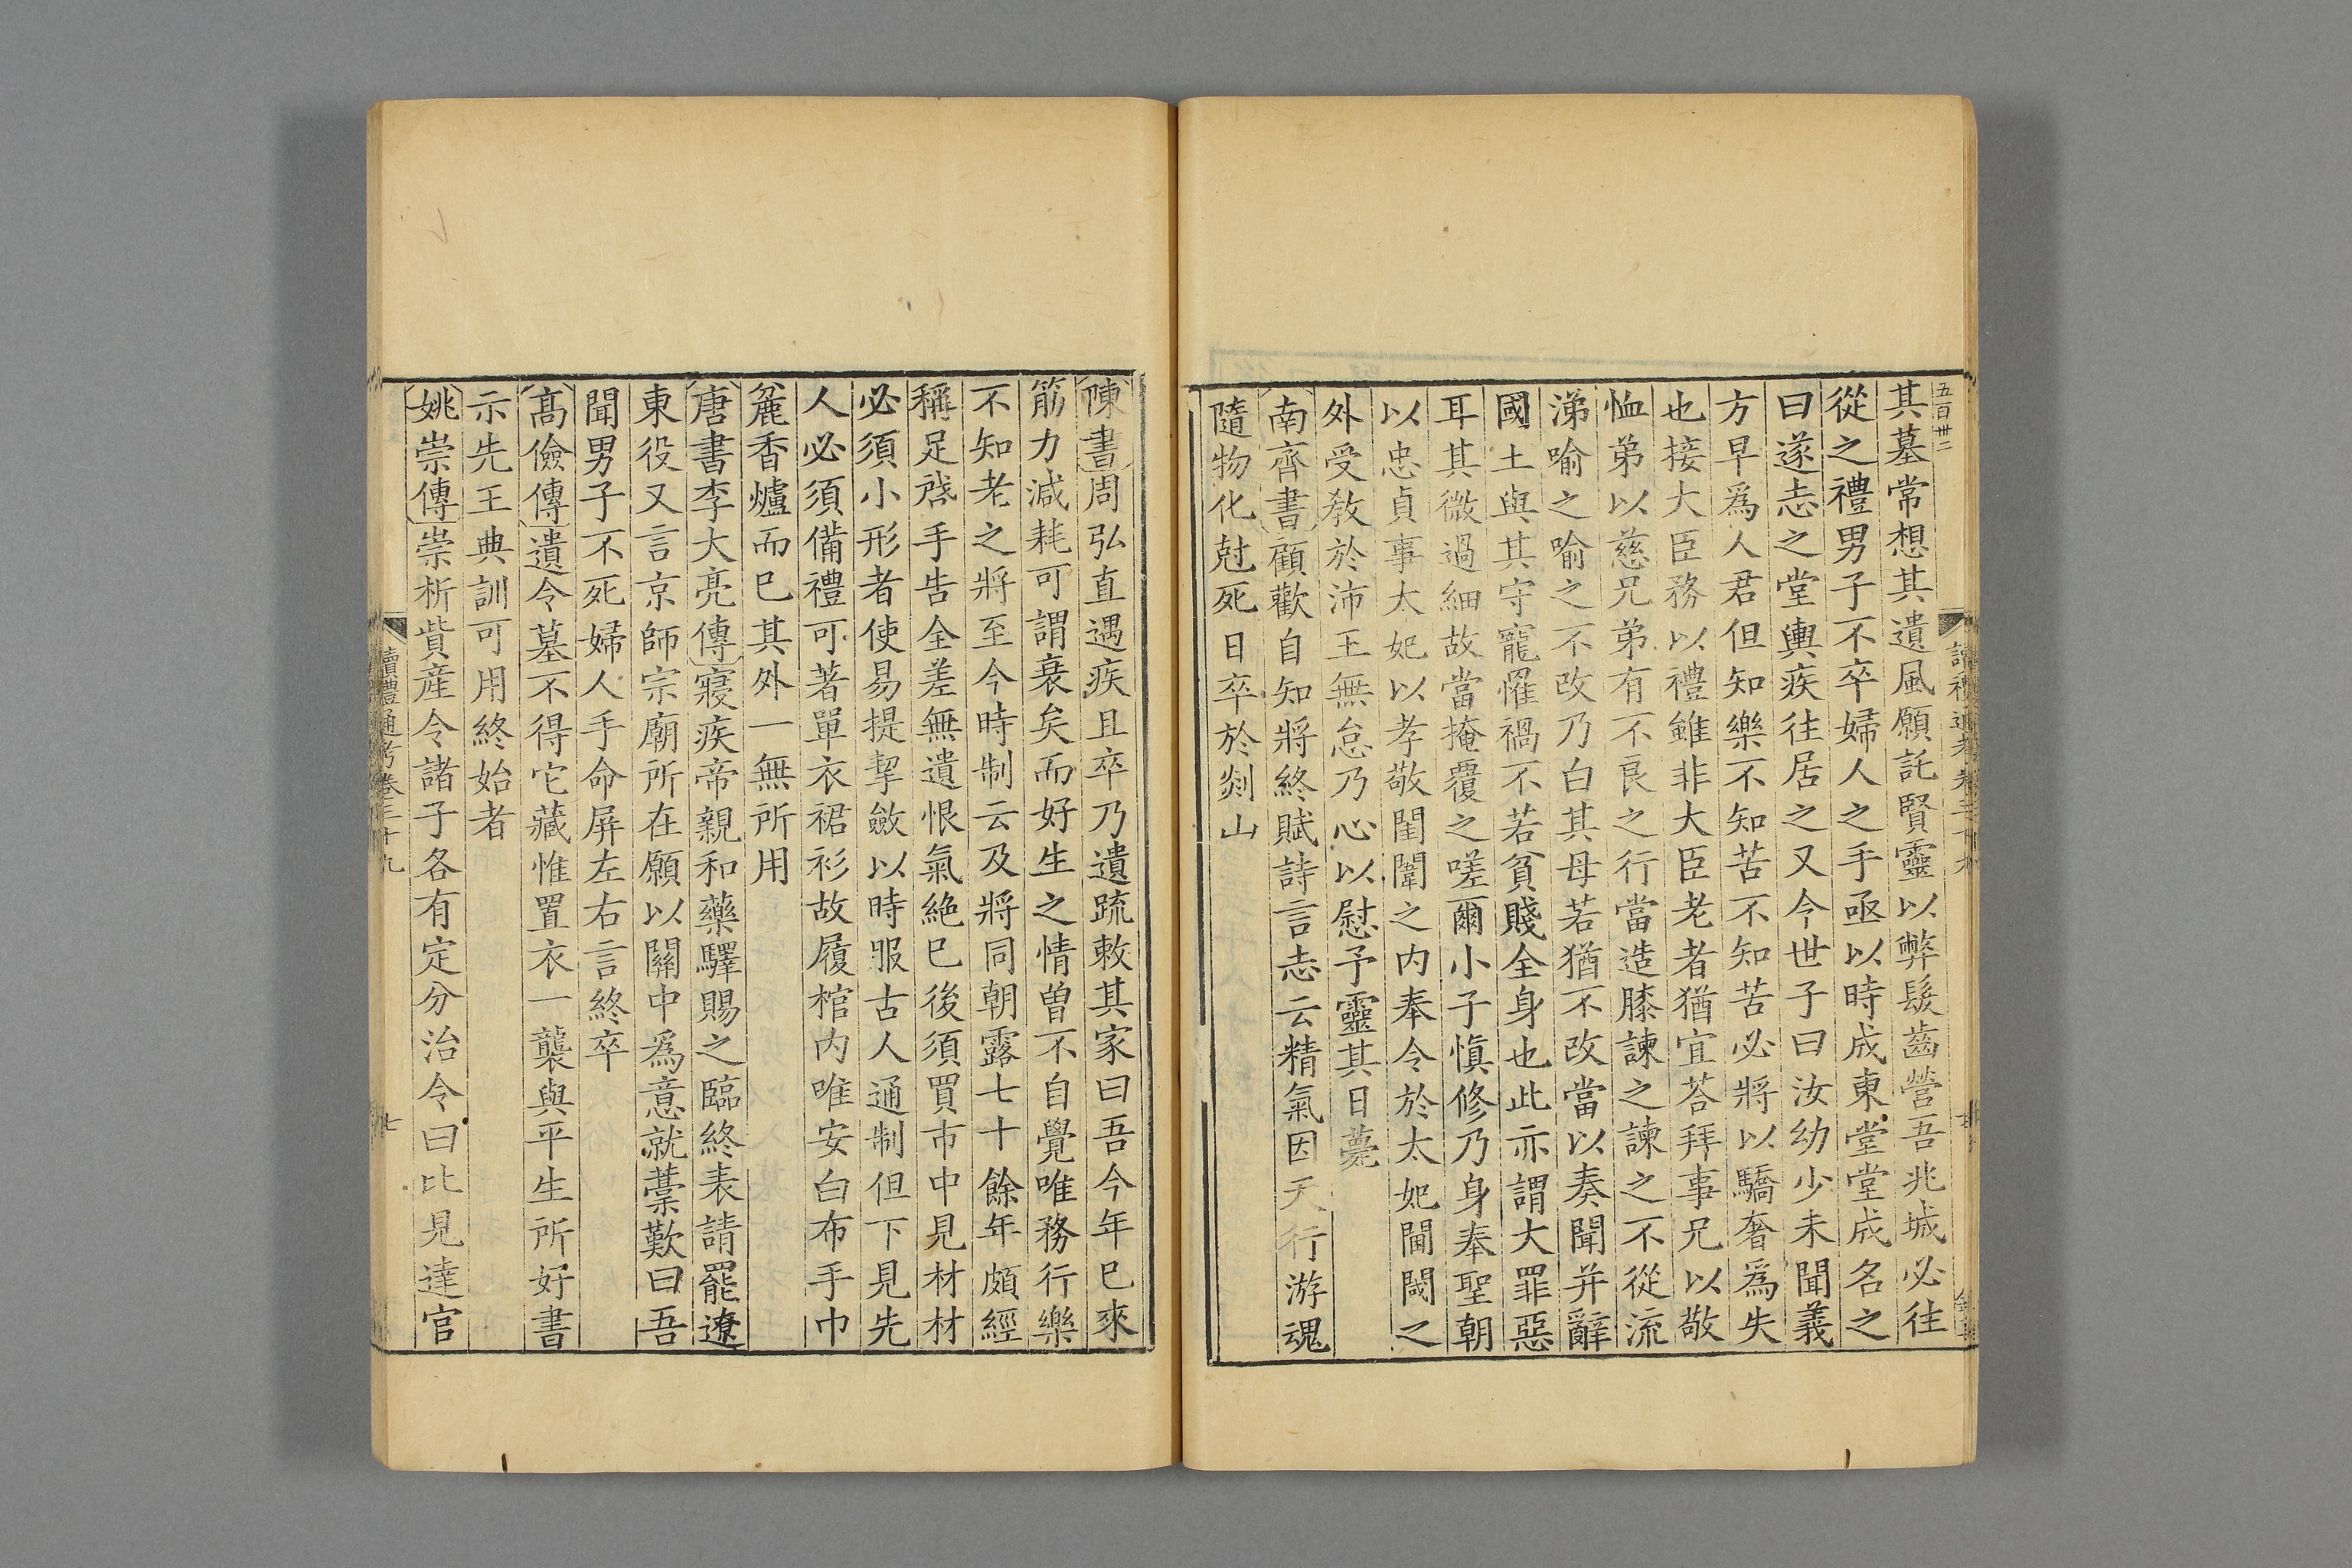 五百卅二
其墓常想其遺風願託賢靈以弊髮齒營吾兆城必往
從之禮男子不卒婦人之手亟以時成東堂堂成名之
曰遂志之堂輿疾往居之又令世子曰汝幼少未聞義
方早爲人君但知樂不知苦不知苦必將以驕奢爲失
也接大臣務以禮雖非大臣老者猶宜荅拜事兄以敬
恤弟以慈兄弟有不良之行當造膝諫之諫之不從流
涕喻之喻之不改乃白其母若猶不改當以奏聞并辭
國土與其守寵罹禍不若貧賤全身也此亦謂大罪惡
耳其微過細故當掩覆之嗟爾小子愼修乃身奉聖朝
以忠貞事太妃以孝敬閨闈之内奉令於太妃閫閾之
外受敎於沛王無怠乃心以慰予靈其日薨
南齊書顧歡自知將終賦詩言志云精氣因天行游魂
隨物化尅死日卒於剡山
陳書周弘直遇疾且卒乃遺疏敕其家曰吾今年已來
筋力減耗可謂衰矣而好生之情曾不自覺唯務行樂
不知老之將至今時制云及將同朝露七十餘年頗經
稱足啓手告全差無遺恨氣絶已後須買市中見材材
必須小形者使易提挈斂以時服古人通制但下見先
人必須備禮可著單衣裙衫故履棺内唯安白布手巾
麄香爐而已其外一無所用
唐書李大亮傳寢疾帝親和藥驛賜之臨終表請罷遼
東役又言京師宗廟所在願以關中爲意就藁歎曰吾
聞男子不死婦人手命屏左右言終卒
髙儉傳遺令墓不得它藏惟置衣一襲與平生所好書
示先王典訓可用終始者
姚崇傳崇析貲產令諸子各有定分治令曰比見達官
讀禮通考卷三十九
七